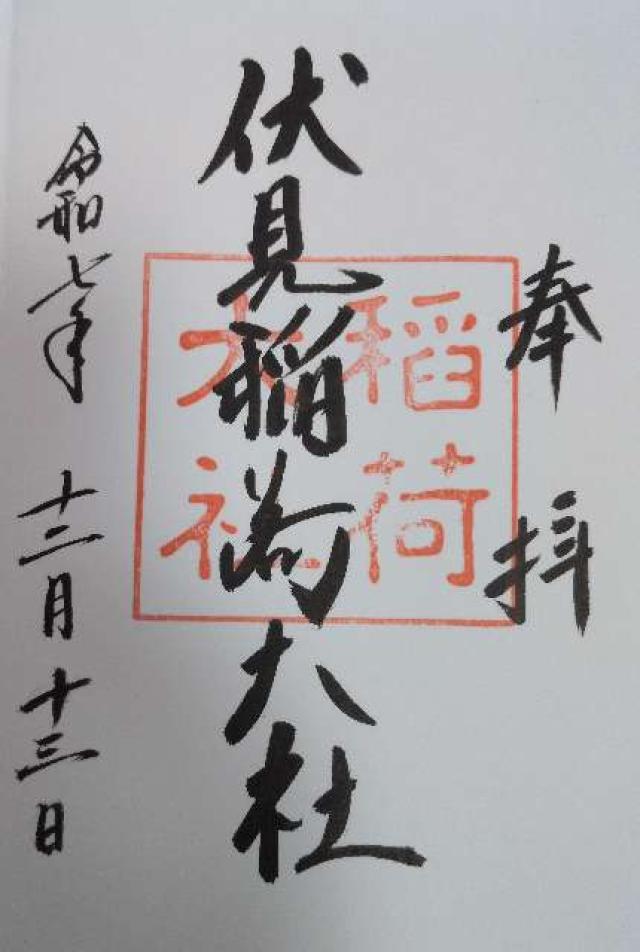 奉拝
伏見稲荷大社
稲荷
大社
令和七年十二月十三日